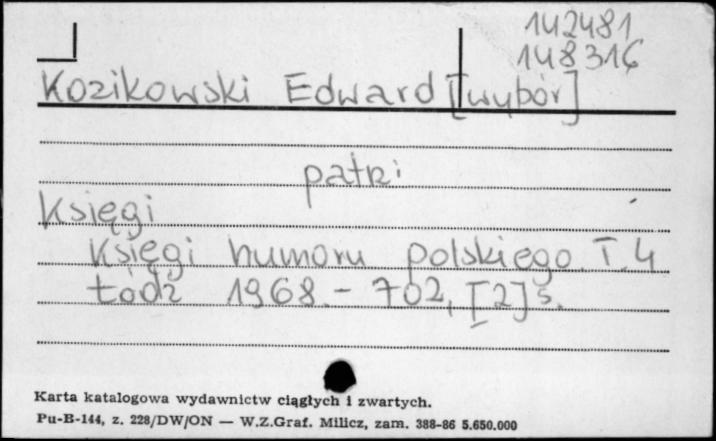 142481
148316
Kozikowski Edward [wybór]
patrz:
Księgi
Księgi humoru polskiego. T. 4
Łódź 1968. - 702, [2] s.
Karta katalogowa wydawnictw ciągłych i zwartych.
Pu-B-144, z. 228/DW/ON — W.Z.Graf. Milicz, zam. 388-86 5.650.000